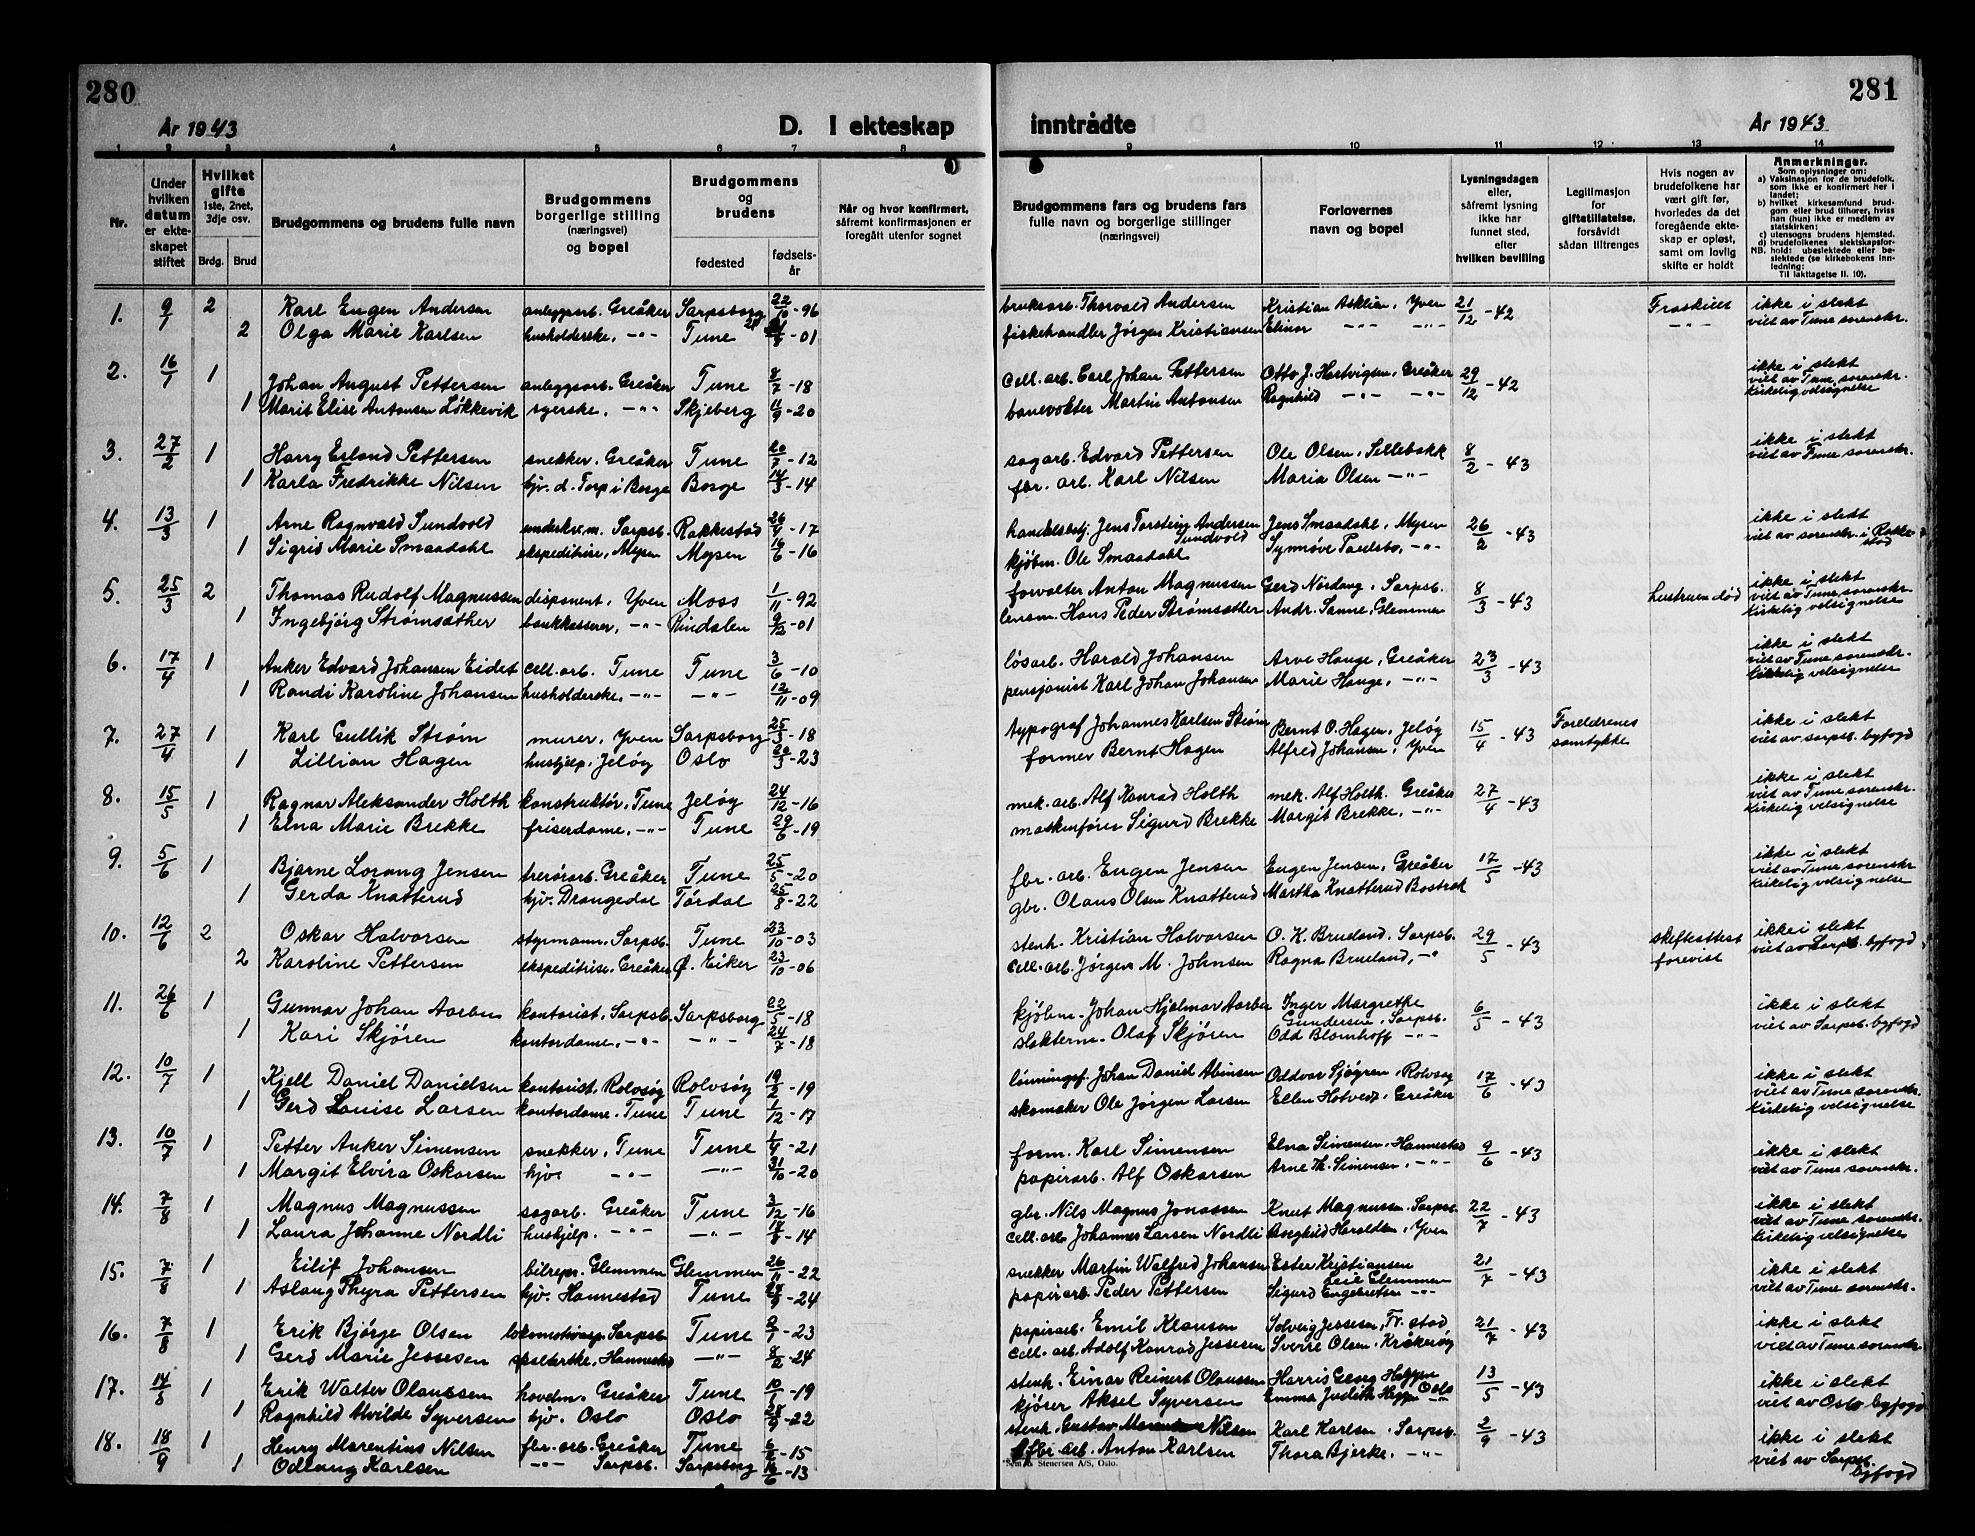 280
281
År 1943
D. I ekteskap
inntrådte
År 1943
1 2 3 4 5 6 7 8 9 10 11 12 13 14
Nr.
Under hvilken datum er ekteskapet stiftet
Hvilket gifte 1ste, 2net, 3dje osv.
Brdg. Brud
Brudgommens og brudens fulle navn
Brudgommens borgerlige stilling (næringsvei) og bopel
Brudgommens og brudens
fødested
fødselsår
Når og hvor konfirmert, såfremt konfirmasjonen er foregått utenfor sognet
Brudgommens fars og brudens fars fulle navn og borgerlige stillinger (næringsvei)
Forlovernes navn og bopel
Lysningsdagen eller, såfremt lysning ikke har funnet sted, efter hvilken bevilling
Legitimasjon for giftetillatelse, forsåvidt sådan tiltrenges
Hvis nogen av brudefolkene har vært gift før, hvorledes da det foregående ekteskap er opløst, samt om lovlig skifte er holdt
Anmerkninger.
Som oplysninger om:
a) Vaksinasjon for de brudefolk, som ikke er konfirmert her i landet;
b) hvilket kirkesamfund brudgom eller brud tilhører, hviss han (hun) ikke er medlem av statskirken;
c) utensogns brudens hjemsted.
d) brudefolkenes slektskapsforhold: ubeslektede eller beslektede (se kirkebokens innledning:
NB. Til iakttagelse II. 10).
1. 9/1 2 Karl Eugen Andersen anleggsarb. Greåker Sarpsborg 22/10-96 bruksarb. Thorvald Andersen Kristian Asklien, Yven 21/12-42 Fraskillt ikke i slekt
2 Olga Marie Karlsen husholderske, -"- Tune -01 fiskehandler Jørgen Kristiansen Elinor -"- -"- -"- viet av Tune sorenskr.
2. 16/1 1 Johan August Pettersen anleggsarb. Greåker Tune 8/7-18 cell. arb. Carl Johan Pettersen Otto J. Hartvigsen, Greåker 29/12-42 ikke i slekt
viet av Tune sorenskr.
1 Marit Elise Antonsen Løkkevik syerske, -"- Skjeberg 11/9-20 banevokter Martin Antonsen Ragnhild -"- -"- Kirkelig velsignelse
3. 27/2 1 Harry Erland Pettersen snekker, Greåker Tune 20/7-12 sagarb. Edvard Pettersen Ole Olsen, Sellebakk 8/2-43 ikke i slekt
viet av Tune sorenskr.
1 Karla Fredrikke Nilsen hjv. d. Torp i Borge Borge 14/3-14 fbr. arb. Karl Nilsen Maria Olsen -"-
4. 13/3 1 Arne Ragnvald Sundvold Sarpsb. Rakkestad 26/9-17 handelsbstj. Jens Torstein Andersen Sundvold Jens Smaadahl, Mysen 26/2-43 ikke i slekt
1 Sigrid Marie Smaadahl ekspeditrise, Mysen Mysen 16/6-16 kjøbm. Ole Smaadahl Synnøve Paulsbo, -"- viet av sorenskr. i Rakkestad
5. 25/3 2 Thomas Rudolf Magnussen disponent, Yven Moss 1/11-92 forvalter Anton Magnussen Gerd Nordang, Sarpsb. 8/3-43 hustruen død ikke i slekt
viet av Tune sorenskr.
1 Ingebjørg Strømsæther bankkasserer, -"- Rindalen 9/12-01 lensm. Hans Peder Strømsæther Andr. Sanne, Glemmen Kirkelig velsignelse
6. 17/4 1 Anker Edvard Johansen Eidet cell. arb. Tune Tune 3/6-10 løsarb. Harald Johansen Arve Hauge, Greåker 23/3-43 ikke i slekt
viet av Tune sorenskr.
1 Randi Karoline Johansen husholderske, -"- -"- 12/11-09 pensjonist Karl Johan Johansen Marie Hauge, -"- Kirkelig velsignelse
7. 27/4 1 Karl Gullik Strøm murer, Yven Sarpsborg 25/3-18 typograf Johannes Karlsen Strøm Bernt O. Hagen, Jeløy 15/4-43 Foreldrenes samtykke ikke i slekt
1 Lillian Hagen hushjelp, Jeløy Oslo 20/3-23 former Bernt Hagen Alfred Johansen, Yven viet av sarpsb. byfogd
8. 15/5 1 Ragnar Aleksander Holth konstruktør, Tune Jeløy 24/12-16 mek. arb. Alf Konrad Holth mek. Alf Holth, Greåker 27/4-43 ikke i slekt
viet av Tune sorenskr.
1 Elna Marie Brekke friserdame, -"- Tune 29/6-19 maskinfører Sigurd Brekke Margit Brekke, -"- Kirkelig velsignelse
9. 5/6 1 Bjarne Lorang Jensen Greåker Tune 25/5-20 fbr. arb. Eugen Jensen Eugen Jensen, Greåker 17/5-43 ikke i slekt
viet av Tune sorenskr.
1 Gerda Knatterud hjv. Drangedal Tørdal 25/8-22 gbr. Olaus Olsen Knatterud Martha Knatterud Bostrak Kirkelig velsignelse
10. 12/6 2 Oskar Halvorsen styrmann, Sarpsb. Tune 23/10-03 stenh. Kristian Halvorsen O. K. Brueland, Sarpsb. 29/5-43 skifteattest forevist ikke i slekt
2 Karoline Pettersen ekspeditrise, Greåker Ø. Eiker 23/10-06 cell. arb. Jørgen M. Johnsen Ragna Brueland, -"- viet av Sarpsb. byfogd
11. 26/6 1 Gunnar Johan Aarbu kontorist, Sarpsb. Sarpsborg 22/5-18 kjøbm. Johan Hjalmar Aarbu Inger Margrethe Gundersen, Sarpsb. 6/5-43 ikke i slekt
1 Kari Skjøren kontordame, -"- -"- 24/7-18 slakterm. Olaf Skjøren Odd Blomhoff -"- viet av Sarpsb. byfogd
12. 10/7 1 Kjell Daniel Danielsen kontorist, Rolvsøy Rolvsøy 19/2-19 lønningsf. Johan Daniel Abinsen Oddvar Sjøgren, Rolvsøy 17/6-43 ikke i slekt
viet av Tune sorenskr.
1 Gerd Louise Larsen kontordame, Tune Tune 1/12-17 skomaker Ole Jørgen Larsen Ellen Hotvedt, Greåker Kirkelig velsignelse
13. 10/7 1 Petter Anker Simensen snekker, Tune Tune 1/9-21 form. Karl Simensen Elna Simensen, Hannestad 9/6-43 ikke i slekt
1 Margit Elvira Oskarsen hjv -"- -"- 31/10-20 papirarb. Alf Oskarsen Arne Th. Simensen, -"- viet av Tune sorenskr.
14. 7/8 1 Magnus Magnussen sagarb. Greåker Tune 3/12-16 gbr. Nils Magnus Jonassen Knut Magnussen, Sarpsb. 22/7-43 ikke i slekt
viet av Tune sorenskr.
1 Laura Johanne Nordli hushjelp, -"- -"- -14 cell. arb. Johannes Larsen Nordli Borghild Haraldsen, Yven Kirkelig velsignelse
15. 7/8 1 Eilif Johansen bilrepr. Glemmen Glemmen 26/11-22 snekker Martin Walfred Johansen Ester Kristiansen Leie Glemmen 21/7-43 ikke i slekt
1 Aslaug Thyra Pettersen hjv. Hannestad Tune -24 papirarb. Peder Pettersen Sigurd Engebretsen -"- viet av Tune sorenskr.
16. 7/8 1 Erik Bjørge Olsen lokomotivasp. Sarpsb. Tune 2/1-23 papirarb. Emil Klausen Solveig Jessesen, Fr. stad 21/7-43 ikke i slekt
1 Gerd Marie Jessesen Hannestad -"- 8/2-24 cell. arb. Adolf Konrad Jessesen Sverre Olsen, Kråkerøy viet av Tune sorenskr.
17. 14/8 1 Erik Walter Olaussen hovdm. Greåker Tune 10/1-19 stenh. Einar Reinert Olaussen Harris Georg Heppn 13/5-43 ikke i slekt
1 Ragnhild Alvilde Syversen hjv. Oslo Oslo 28/9-22 kjøser Aksel Syversen Emma Judith Oslo viet av Oslo byfogd
18. 18/9 1 Henry Marentius Nilsen fbr. arb. Greåker Tune 6/2-15 stenh. Gustav Nilsen Karl Karlsen, Sarpsb. 2/9-43 ikke i slekt
1 Odlaug Karlsen -"- Sarpsb. Sarpsborg 16/6-13 fbr. arb. Anton Karlsen Thora Bjerke, -"- viet av Sarpsb. byfogd
Stenersen A/S, Oslo.